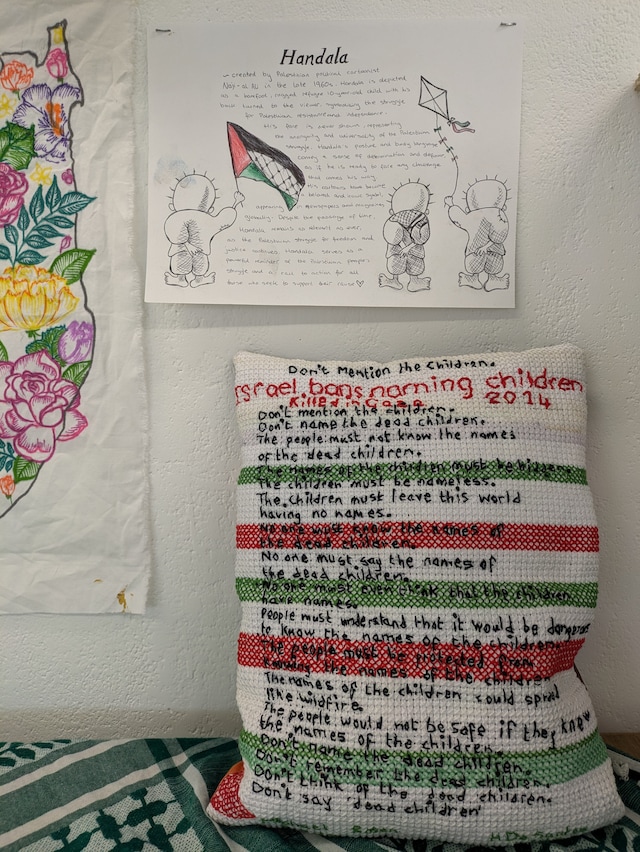 Handala
created by Palestinian political cartoonist
Naji al Ali in the late 1960s, Handala is depicted
as a barefoot, ragged refugee 10 year old child with his
back turned to the viewer, symbolising the struggle
for Palestinian and independence.
His face is never shown, representing
the and universality of the Palestinian
struggle. Handala's posture and body language
convey a sense of determination and defiance,
as if he is ready to face any challenge
that comes his way.
cartoons have become
a beloved and
appearing in newspapers and magazines
globally. Despite the passage of time,
Handala remains as relevant as ever,
as the Palestinian struggle for freedom and
justice continues. Handala serves as a
powerful reminder of the Palestinian people's
struggle and a call to action for all
those who seek to support their cause ♡
Don't Mention the Children.
Israel bans naming children
Killed in Gaza 2014
Don't mention the children.
Don't name the dead children.
The people must not know the names
of the dead children.
The names of the children must be hidden.
The children must be nameless.
The children must leave this world
having no names.
No one must know the names of
the dead children.
No one must say the names of
the dead children.
No one must even think that the children
have names.
People must understand that it would be dangerous
to know the names of the children.
The people must be protected from
knowing the names of the children.
The names of the children could spread
like wildfire.
The people would not be safe if they know
the names of the children.
Don't name the dead children.
Don't remember the dead children.
Don't think of the dead children.
Don't say 'dead children'
Rosen